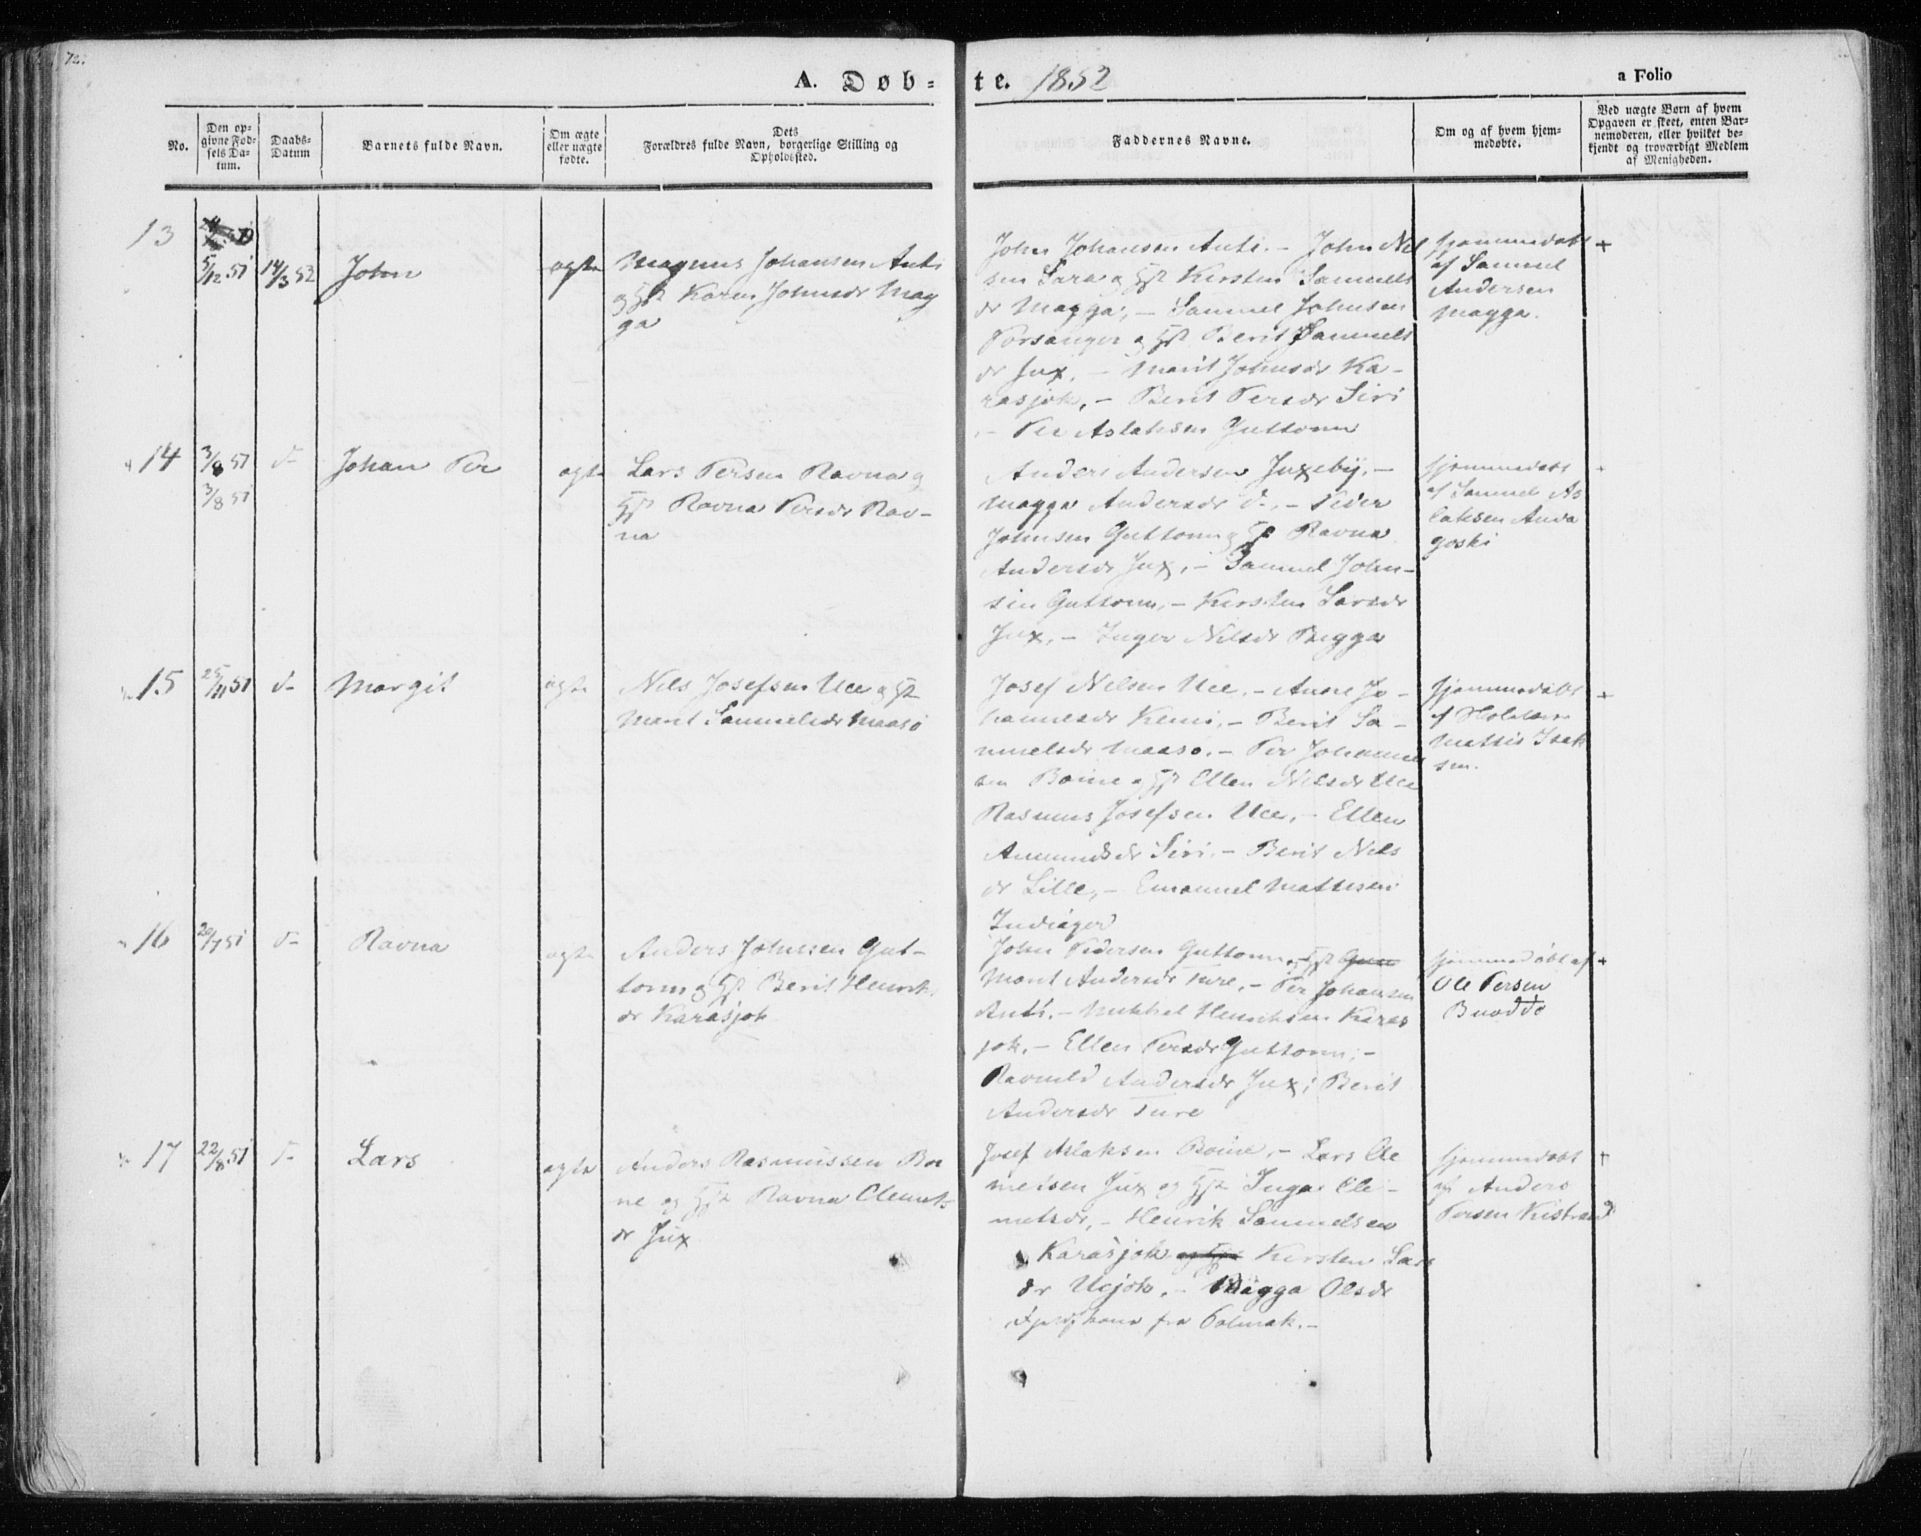 72.
A. Døb=
te. 1852
a Folio
No.
Den op=
givne Fød=
sels Da=
tum.
Daabs=
Datum
Barnets fulde Navn.
Om ægte
eller uægte
fødte.
Dets
Forældres fulde Navn, borgerlige Stilling og
Opholdssted.
Faddernes Navne.
Om og af hvem hjem=
medøbte.
Ved uægte Børn af hvem
Opgaven er skeet, enten Bar=
nemoderen, eller hvilket be=
kjendt og troværdigt Medlem
af Menigheden.
13
5/12 51
14/3 52
John
ægte
Magnus Johansen Anti
og Hst Karen Johnsdr Mag
ga
John Johansen Anti. - John Nil
sen Sara og Hst Kirsten Samuels
dr Magga, - Samuel Johnsen
Porsanger og Hst Berit Samuels
dr Jux, - Marit Johnsdr Ka-
rasjok, - Berit Persdr Siri
- Per Aslaksen Guttorm
hjemmedøbt
af Samuel
Andersen
Magga.
+
14
3/8 51
3/8 51
d-
Johan Per
ægte
Lars Persen Ravna og
Hst Ravna Persdr Rav-
na
Anders Andersen Juxeby, -
Magga Andersdr d., - Peder
Johnsen Guttorm og Hst Ravna
Andersdr Jux, - Samuel John-
sen Guttorm, - Kirsten Larsdr
Jux, - Inger Nilsdr Pigga
hjemmedøbt
af Samuel As
laksen Anda
goski
15
25/11 51
d-
Margit
ægte
Nils Josefsen Uce og Hst
Marit Samuelsdr Maasø
Josef Nilsen Uce, - Anne Jo-
hannesdr Kemi, - Berit Sa-
muelsdr Maasø, - Per Johannes
sen Boine og Hst Ellen Nilsdr Uce
Rasmus Josefsen Uce, - Ellen
Amundsdr Siri, - Berit Nils
dr Lille, - Emanuel Mathisen
Indiager
hjemmedøbt
af Holder
Mathis Isak
sen.
+
16
20/7 51
d-
Ravna
ægte
Anders Johnsen Gut-
torm og Hst Berit Henriks
dr Karasjok
John Pedersen Guttorm og Hst
Marit Andersdr Ture, - Per Johansen
Anti, - Mikkel Henriksen Karas
jok, - Ellen Persdr Guttorm, -
Ravneld Andersdr Jux; Berit
Andersdr Ture
hjemmedøbt af
Ole Persen
Buoddo
+
17
22/8 51
d-
Lars
ægte
Anders Rasmussen Boi
ne og Hst Ravna Clemets
dr Jux
Josef Aslaksen Boine, - Lars Cle
metsen Jux og Hst Inga Cle-
metsdr, - Henrik Samuelsen
Karasjok og Hst Kirsten Lars
dr Ucjok, - Magga Olsdr
fra Polmak. -
hjemmedøbt
af Anders
Persen Kistrand
+